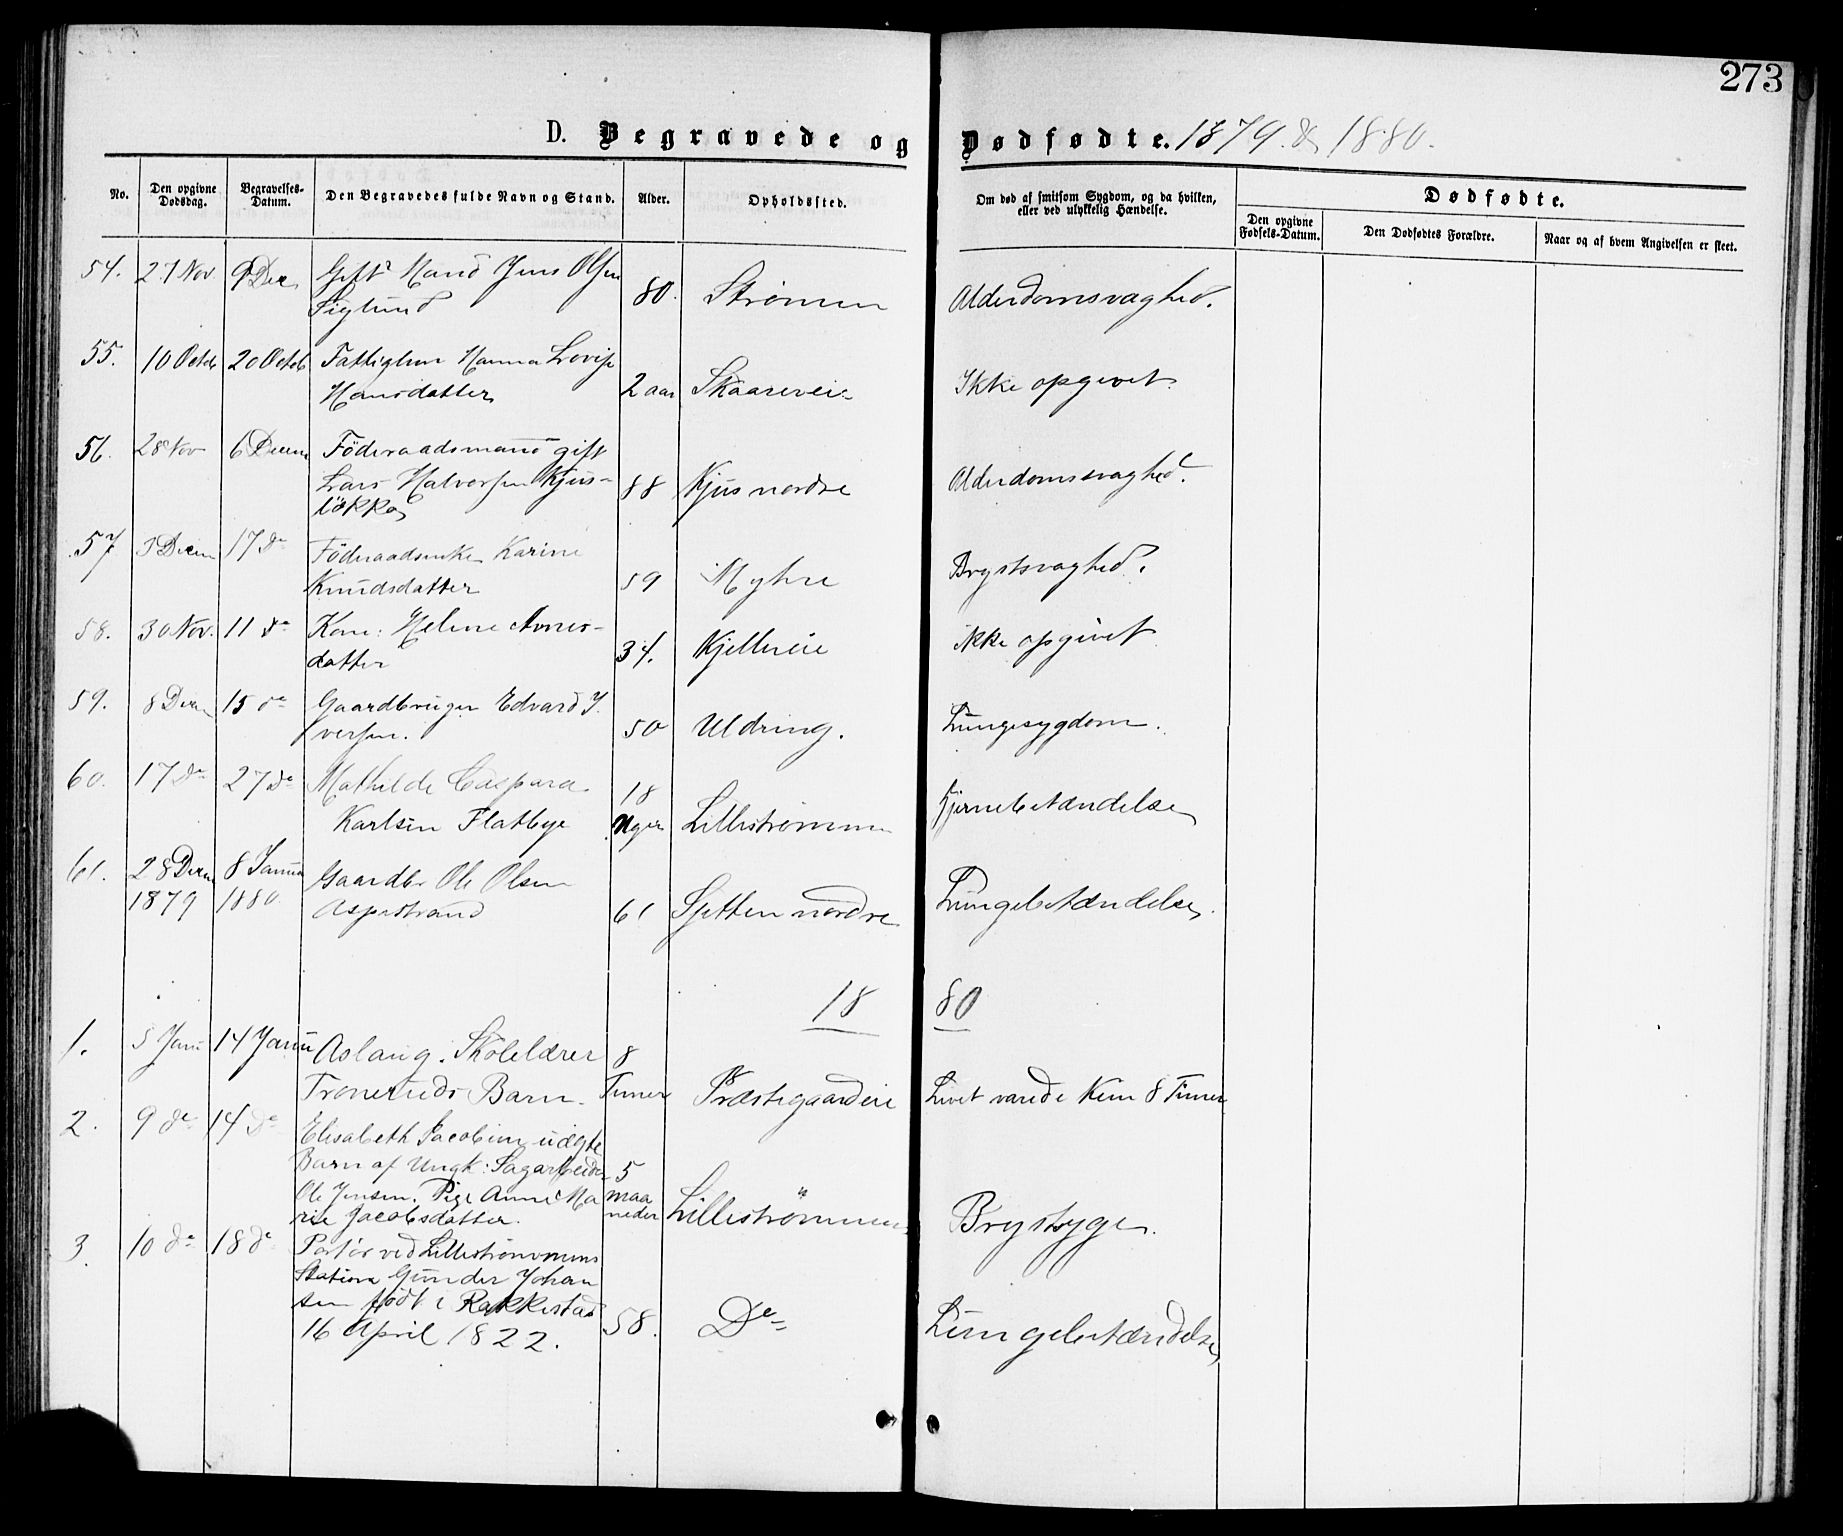 273
D. Begravede og Dødfødte. 1879 & 1880.
No.
Den opgivne Dødsdag.
Begravelses-Datum.
Den Begravedes fulde Navn og Stand.
Alder.
Opholdssted.
Om død af smitsom Sygdom, og da hvilken, eller ved ulykkelig Hændelse.
Dødfødte.
Den opgivne Fødsels-Datum.
Den Dødfødtes Forældre.
Naar og af hvem Angivelsen er skeet.
54. 27 Nov. 9 Dec Gift Mand Jens Olsen
Siglund 80. Strömen Alderdomsvaghed.
55. 10 Octob 20 Octob Fattiglem Hanna Lovise
Hansdatter 2 aar Skaareveie Ikke opgivet.
56. 28 Nov 6 Decem Föderaadsmand gift
Lars Halvorsen Kjus-
lökka 88 Kjus nordre Alderdomssvaghed.
57 Decem 17 de Föderaadsenke Karine
Knudsdatter 59 Myhre Brystsvaghed.
58. 30 Nov. 11 de Kone: Helene
datter 34. Kjellereie ikke opgivet
59. 8 Decem 15 de Gaardbruger Edvard I
versen. 50 Uldring. Lungesygdom.
60. 17 de 27 de Mathilde Caspara
Karlsen Flatbye 18 Uger Lilleströmmen Hjernebetændelse
61. 28 Decem 1879 8 Janua 1880 Gaardbr Ole Olsen
Aspestrand 61 Sjetten nordre Lungebetændelse.
18 80
1. 5 Janu 14 Janu Aslaug. Skolelærer
Troneruds Barn. 8 Timer Præstegaardeie Livet varede kun 8 Timer
2. 9 de 14 de Elisabeth Jacobine uægte
Barn af Ungk: Sagarbeider
Ole Jensen. Pige Anne Ma
rie Jacobsdatter. 5 maaneder Lilleströmmen Brystsyge.
3. 10 de 18 de Portör ved Lilleströmmens
Station Gunder Johan
sen född i Rakkestad
16 April 1822. 58. De Lungebetændelse